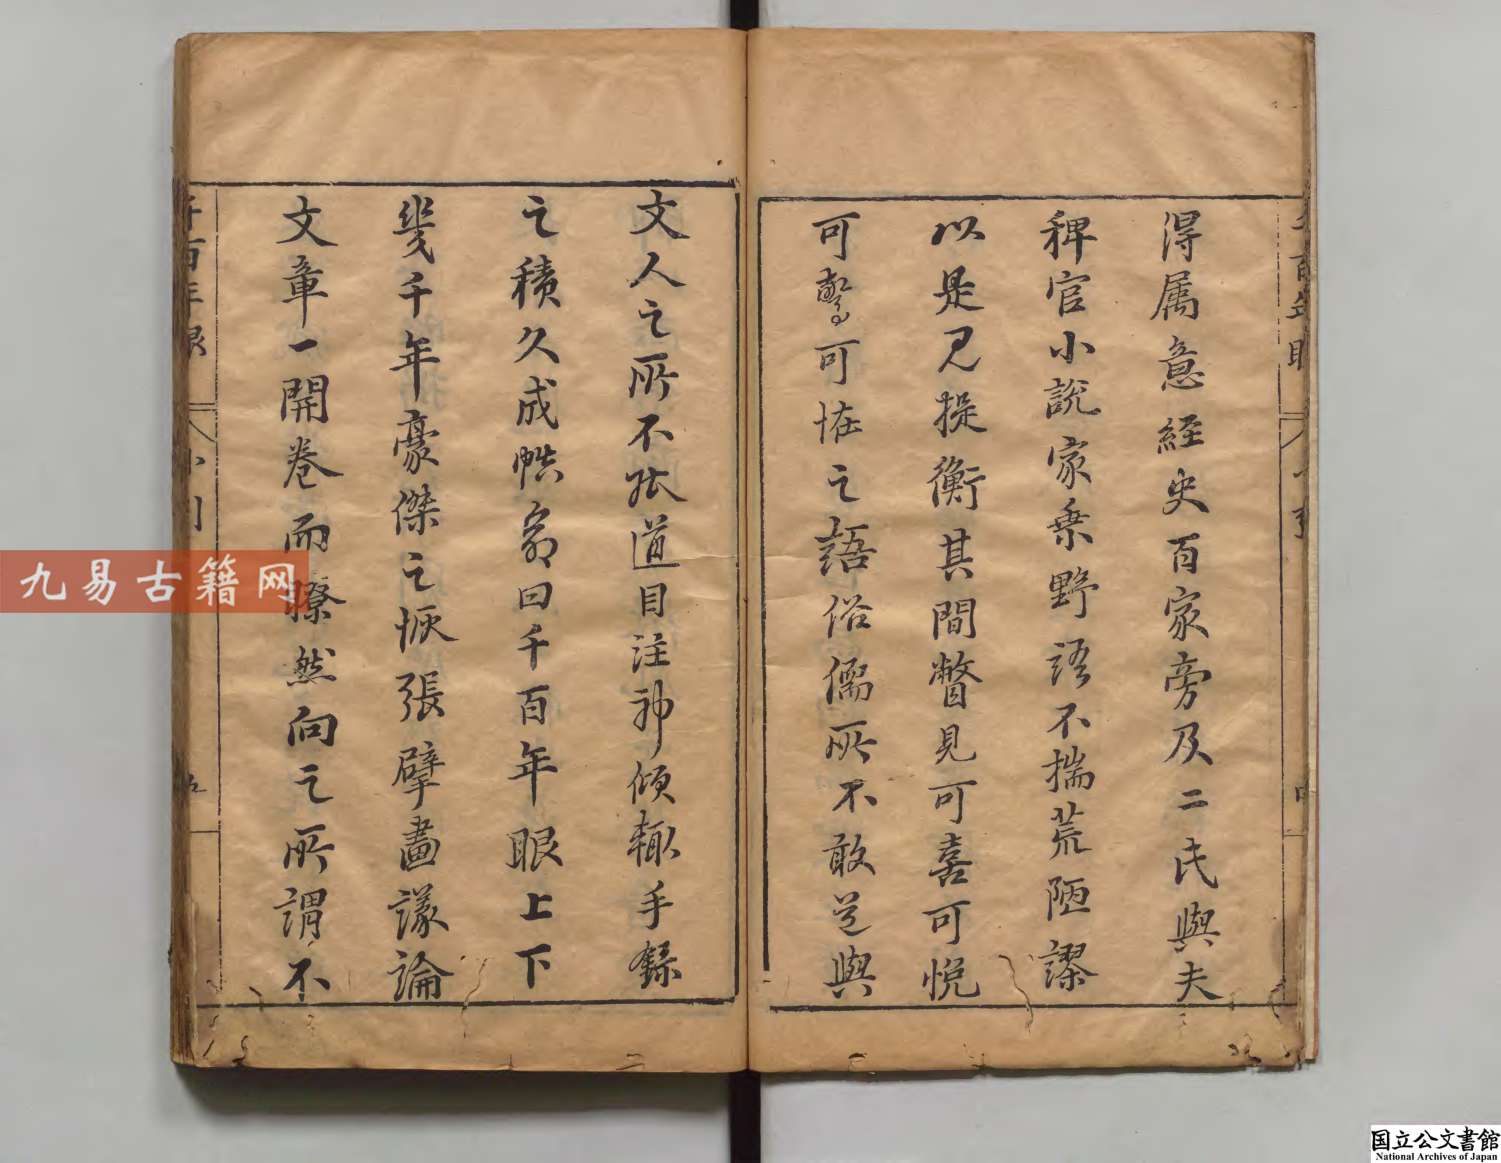 得属意經史百家旁及二氏與夫
稗官小說家乗野語不揣荒陋謬
以是見提衡其間瞥見可喜可悦
可驚可恠之語俗儒所不敢道與
文人之所不能道目注神傾輙手錄
之積久成帙名曰千百年眼上下
幾千年豪傑之恢張擘畫議論
文章一開卷而瞭然向之所謂不
千百年眼
小引
五
九易古籍网
国立公文書館
National Archives of Japan